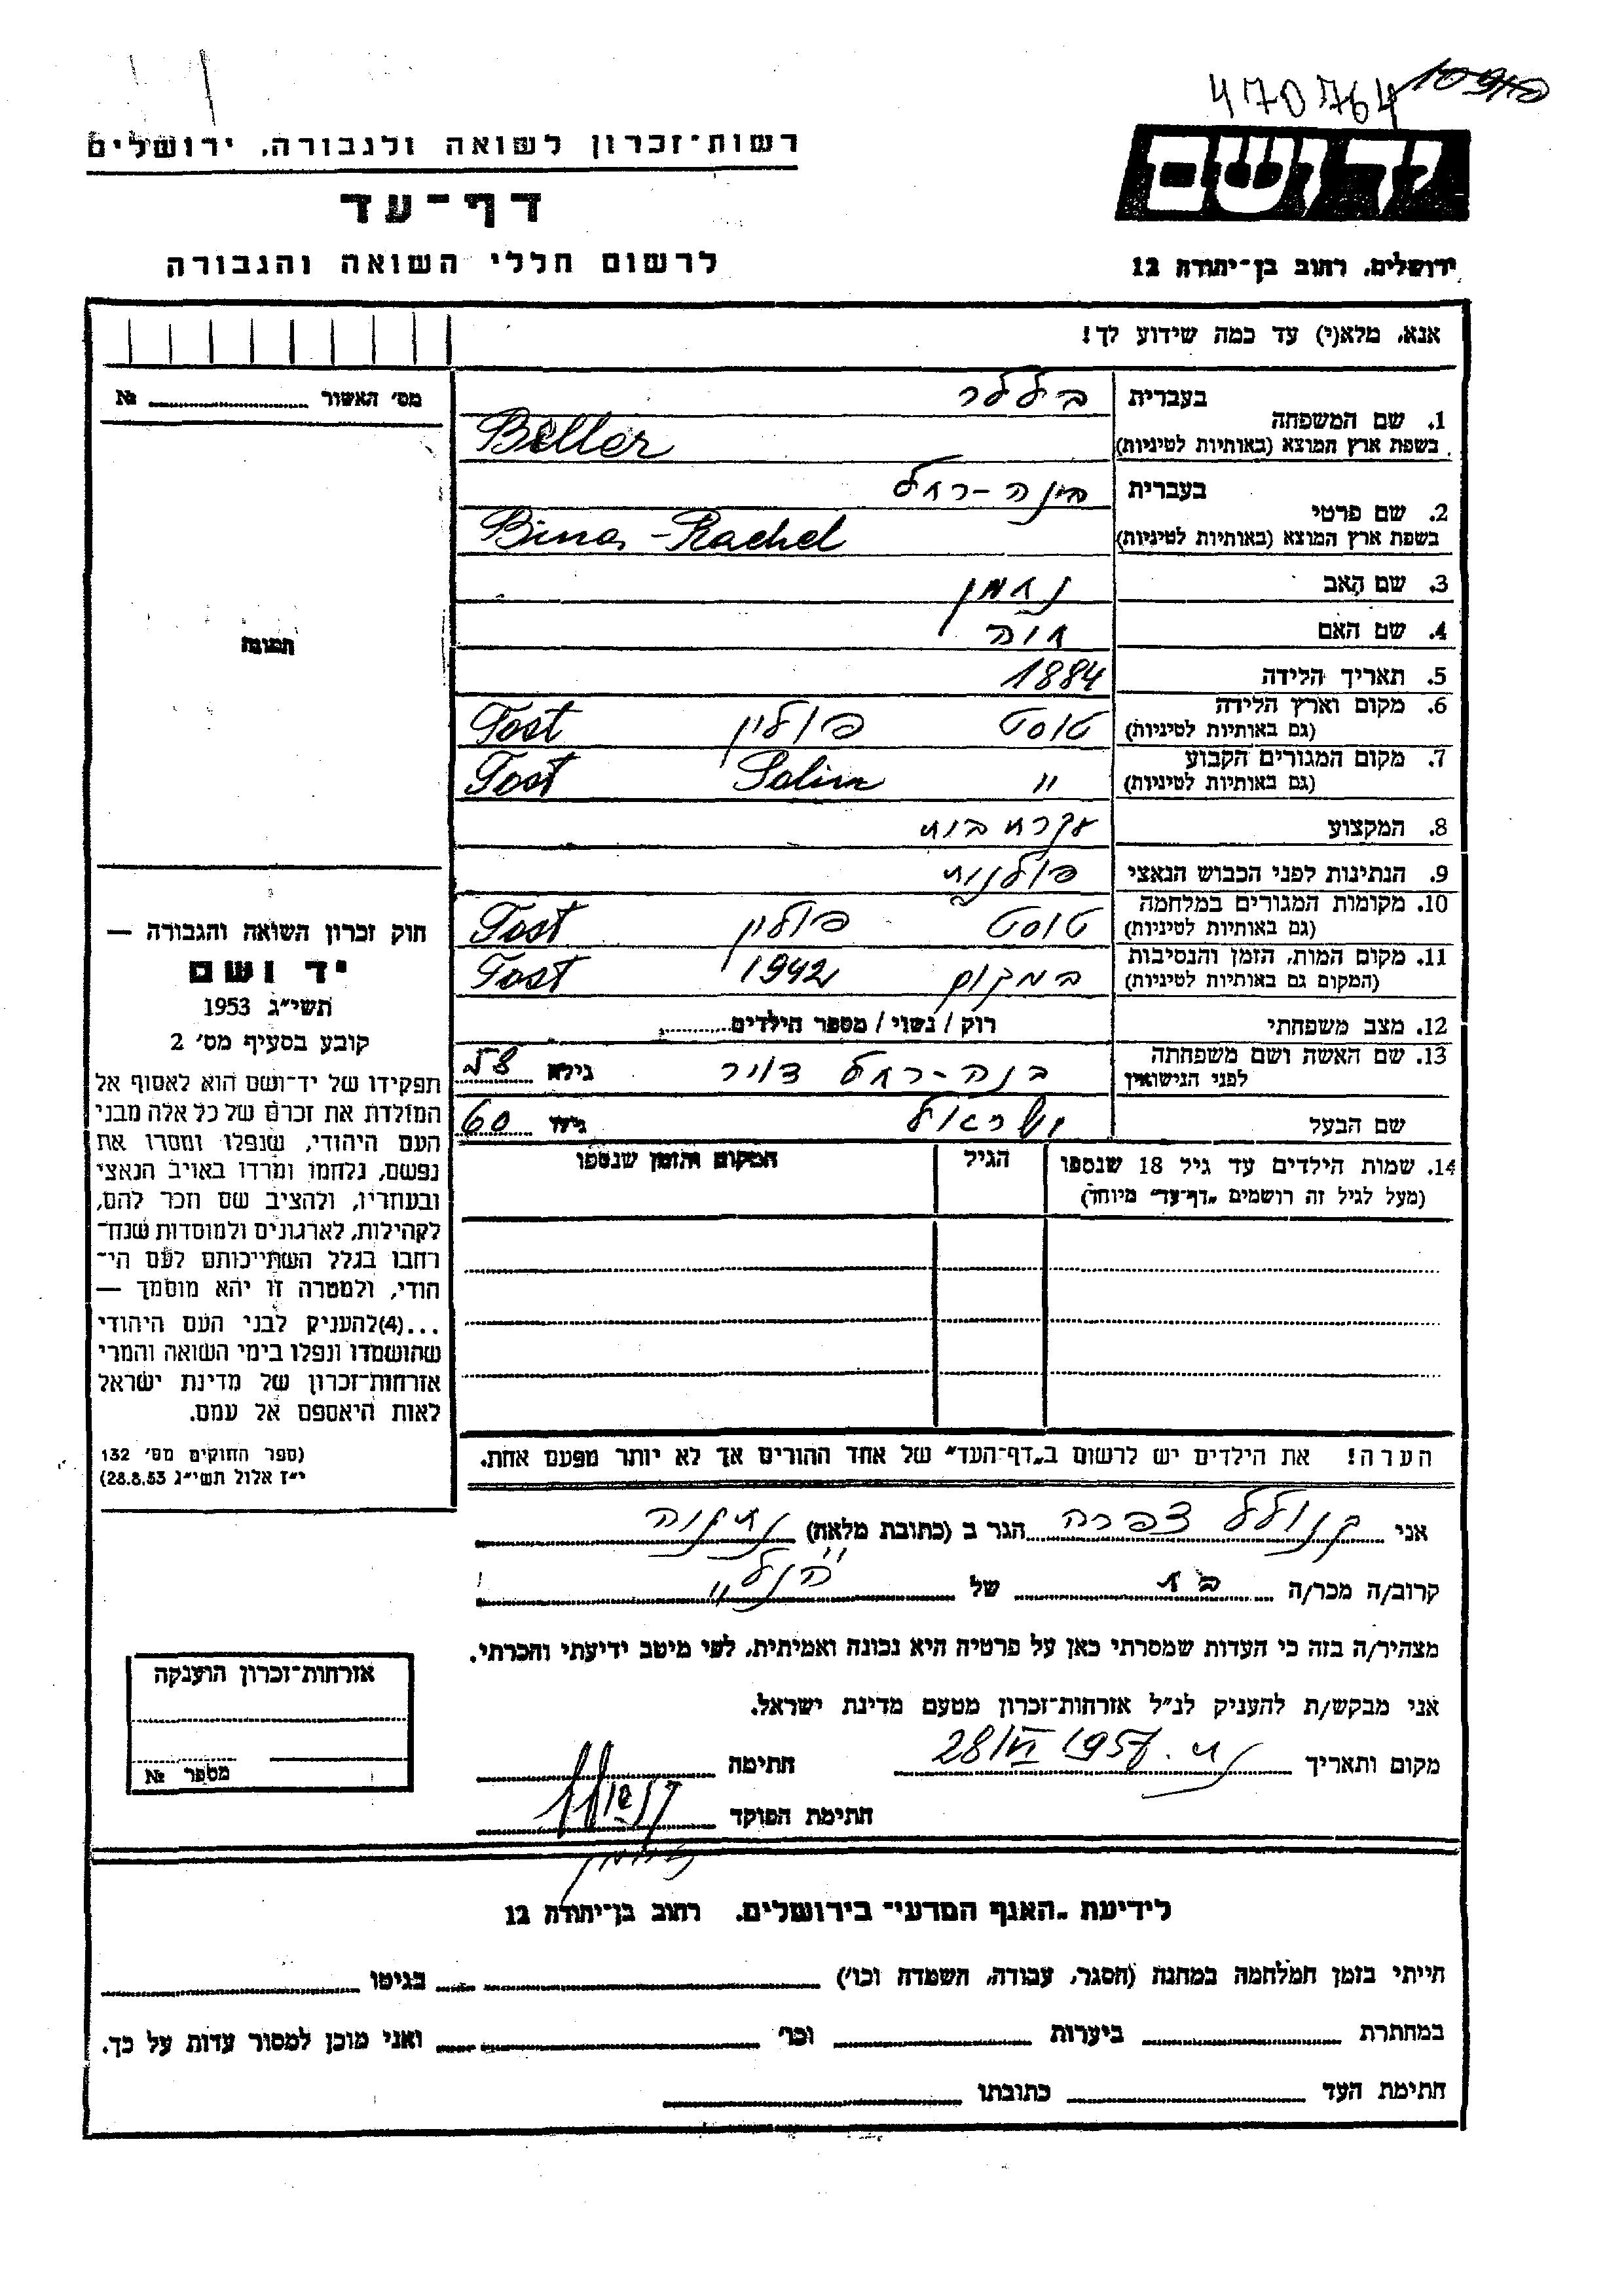 470764
רשות-זכרון לשואה ולגבורה, ירושלים
יד ושם
דף-עד
לרשום חללי השואה והגבורה
ירושלים, רחוב בן-יהודה 12
אנא, מלא(י) עד כמה שידוע לך!
מס' האשור № ..........
בעברית בללר
1. שם המשפחה
בשפת ארץ המוצא (באותיות לטיניות) Beller
בעברית בינה-רחל
2. שם פרטי
בשפת ארץ המוצא (באותיות לטיניות) Bina-Rachel
3. שם האב נחמן
4. שם האם חוה
תמונה
5. תאריך הלידה 1884
6. מקום וארץ הלידה
(גם באותיות לטיניות) טוסט פולין Tost
7. מקום המגורים הקבוע
(גם באותיות לטיניות) " Tost
8. המקצוע עקרת בית
9. הנתינות לפני הכבוש הנאצי פולנית
10. מקומות המגורים במלחמה
(גם באותיות לטיניות) טוסט פולין Tost
11. מקום המות, הזמן והנסיבות
(המקום גם באותיות לטיניות) במקום 1942 Tost
12. מצב משפחתי רוק / נשוי / מספר הילדים..........
13. שם האשה ושם משפחתה
לפני הנישואין בנה-רחל גילה 58
שם הבעל ישראל גילו 60
14. שמות הילדים עד גיל 18 שנספו
(מעל לגיל זה רושמים „דף-עד" מיוחד)
הגיל
המקום והזמן שנספו
חוק זכרון השואה והגבורה —
יד ושם
תשי"ג 1953
קובע בסעיף מס' 2
תפקידו של יד-ושם הוא לאסוף אל
המולדת את זכרם של כל אלה מבני
העם היהודי, שנפלו ומסרו את
נפשם, נלחמו ומרדו באויב הנאצי
ובעוזריו, ולהציב שם וזכר להם,
לקהילות, לארגונים ולמוסדות שנח-
רחבו בגלל השתייכותם לעם הי-
הודי, ולמטרה זו יהא מוסמך —
...(4)להעניק לבני העם היהודי
שהושמדו ונפלו בימי השואה והמרי
אזרחות-זכרון של מדינת ישראל
לאות היאספם אל עמם.
(ספר החוקים מס' 132
י"ז אלול תשי"ג 28.8.53)
הערה! את הילדים יש לרשום ב„דף-העד" של אחד ההורים אך לא יותר מפעם אחת.
אני צפרה הגר ב (כתובת מלאה) נתניה
קרוב/ה מכר/ה בת של "הנ"ל"
מצהיר/ה בזה כי העדות שמסרתי כאן על פרטיה היא נכונה ואמיתית, לפי מיטב ידיעתי והכרתי.
אני מבקש/ת להעניק לנ"ל אזרחות-זכרון מטעם מדינת ישראל.
מקום ותאריך חתימה
חתימת הפוקד
אזרחות-זכרון הוענקה
מספר №
לידיעת „האגף המדעי" בירושלים, רחוב בן-יהודה 12
הייתי בזמן המלחמה במחנה (הסגר, עבודה, השמדה וכו') .......... בגיטו ..........
במחתרת .......... ביערות .......... וכו' .......... ואני מוכן למסור עדות על כך.
חתימת העד .......... כתובתו ..........